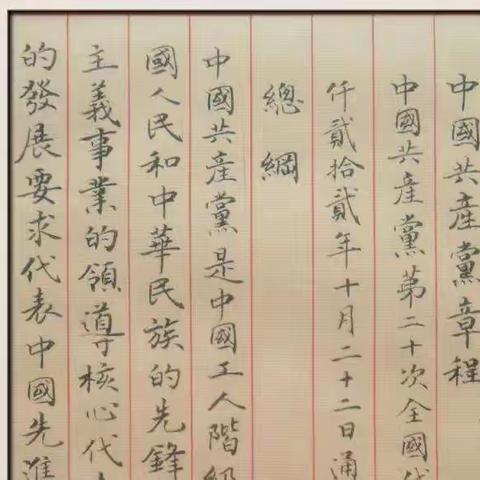 中國共產黨章程
中國共產黨第二十次全國代
仟貳拾貳年十月二十二日通
總綱
中國共產黨是中國工人階級
國人民和中華民族的先鋒
主義事業的領導核心代
的發展要求代表中國先進